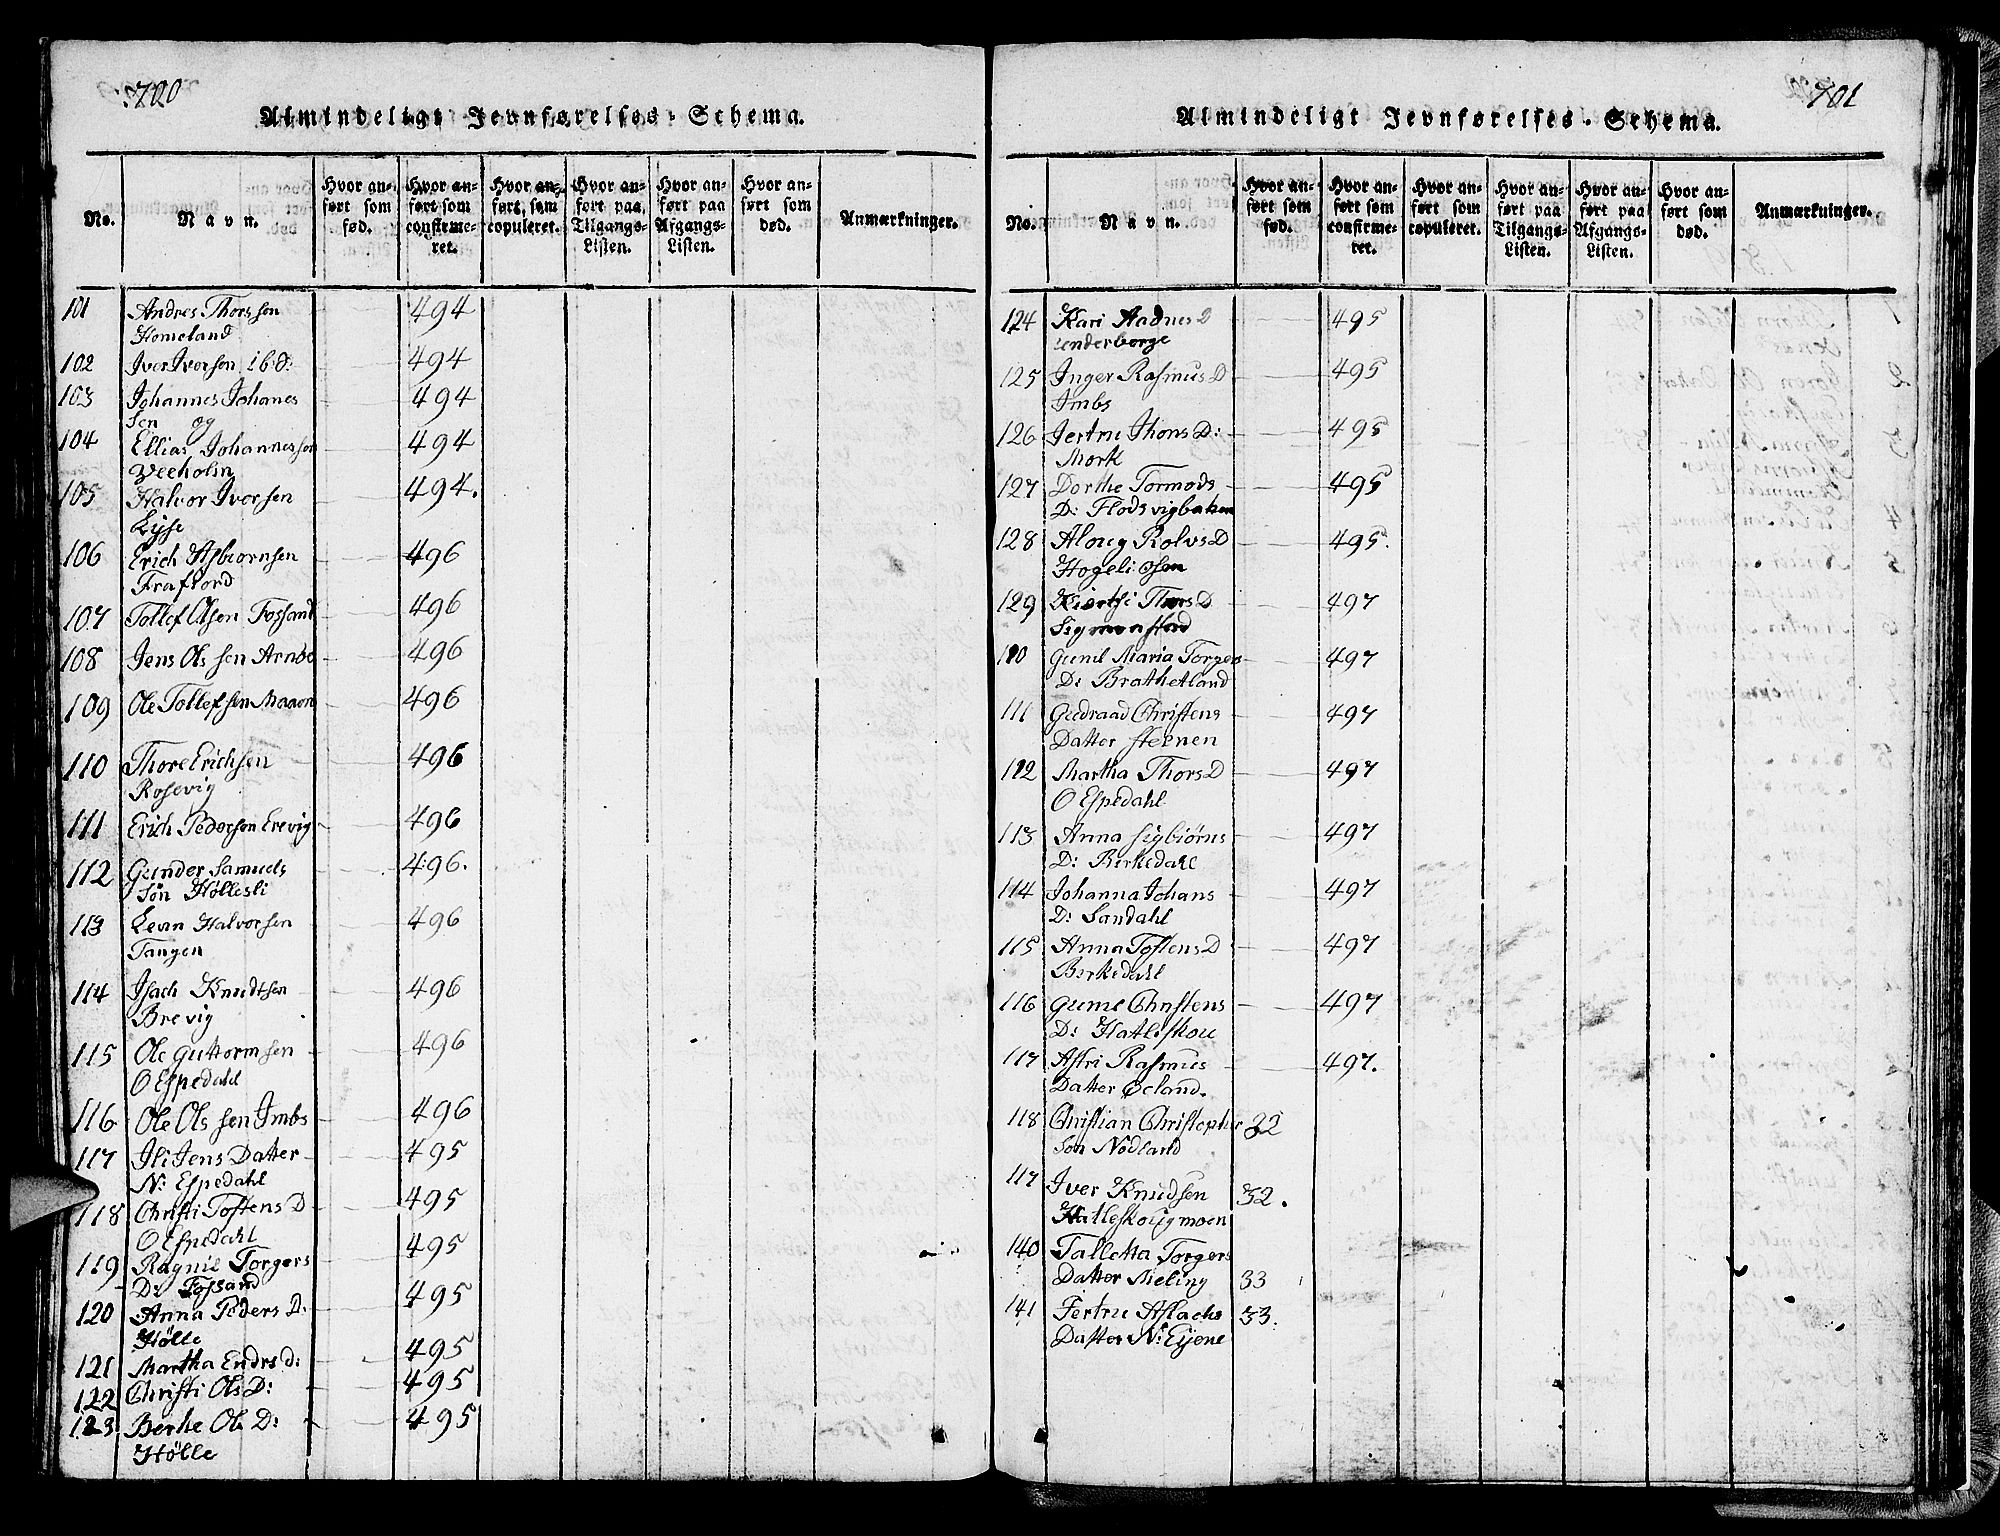 700
Almindeligt Jevnførelses-Schema.
No.
Navn.
Hvor anført som fød.
Hvor anført som confirmeret.
Hvor anført som copuleret.
Hvor anført paa Tilgangs-Listen.
Hvor anført paa Afgangs-Listen.
Hvor anført som død.
Anmærkninger.
101 Andres Thorssen 494
Homeland
102 Iver Iversen ibd: 494
103 Johannes Johanes 494
sen og
104 Ellias Johannessen 494
Veeholm
105 Halvor Iversen 494.
Lyse
106 Erich Asbiornsen 496
Frafiord
107 Tollef Olsen Fossand 496
108 Jens Olssen Arnøe 496
109 Ole Tollefsen Maaon 496
110 Thore Erichsen 496
Rosevig
111 Erich Pedersen Erevig 496
112 Gunder Samuels 496.
søn Höllesli
113 Levin Halvorsen 496
Tangen
114 Isach Knudtsen 496
Brevig
115 Ole Guttormsen 496
O Espedahl
116 Ole Olssen Imbs 496
117 Ili Jens Datter 495
N: Espedahl
118 Christi Tostens D 495
O Espedahl
119 Ragnil Torgers 495
D: Fossand
120 Anna Peders D: 495
Hölle
121 Martha Endrs D: 495
122 Christi Ols D: 495
123 Berthe Ols D: 495
Hölle
701
Almindeligt Jevnførelses-Schema.
No.
Navn.
Hvor anført som fød.
Hvor anført som confirmeret.
Hvor anført som copuleret.
Hvor anført paa Tilgangs-Listen.
Hvor anført paa Afgangs-Listen.
Hvor anført som død.
Anmærkninger.
124 Kari Aadnes D 495
Enderberge
125 Inger Rasmus D 495
Imbs
126 Jertru Thons D: 495
Mork
127 Dorthe Tormods 495
D: Flodsvigbaken
128 Aloug Rolvs D 495.
Hogeli osen
129 Thors D 497
Sigmonstad
110 Gunil Maria Torgers 497
D: Brathetland
111 Gudraad Christens 497
Datter Steenen
112 Martha Thors D 497
O Espedahl
113 Anna Sigbiørns 497
D: Berkedahl
114 Johanna Johans 497
D: Sandahl
115 Anna Tostens D 497
Berkedahl
116 Gunil Christens 497
D: Hatleskou
117 Astri Rasmus 497.
Datter Øeland.
118 Christian Christopher 32
søn Nødland
117 Iver Knudsen 32.
Hatleskougmoen
140 Talletta Torgers
Datter Meling 33
141 Jertru Aslachs 33.
Datter N: Eyene